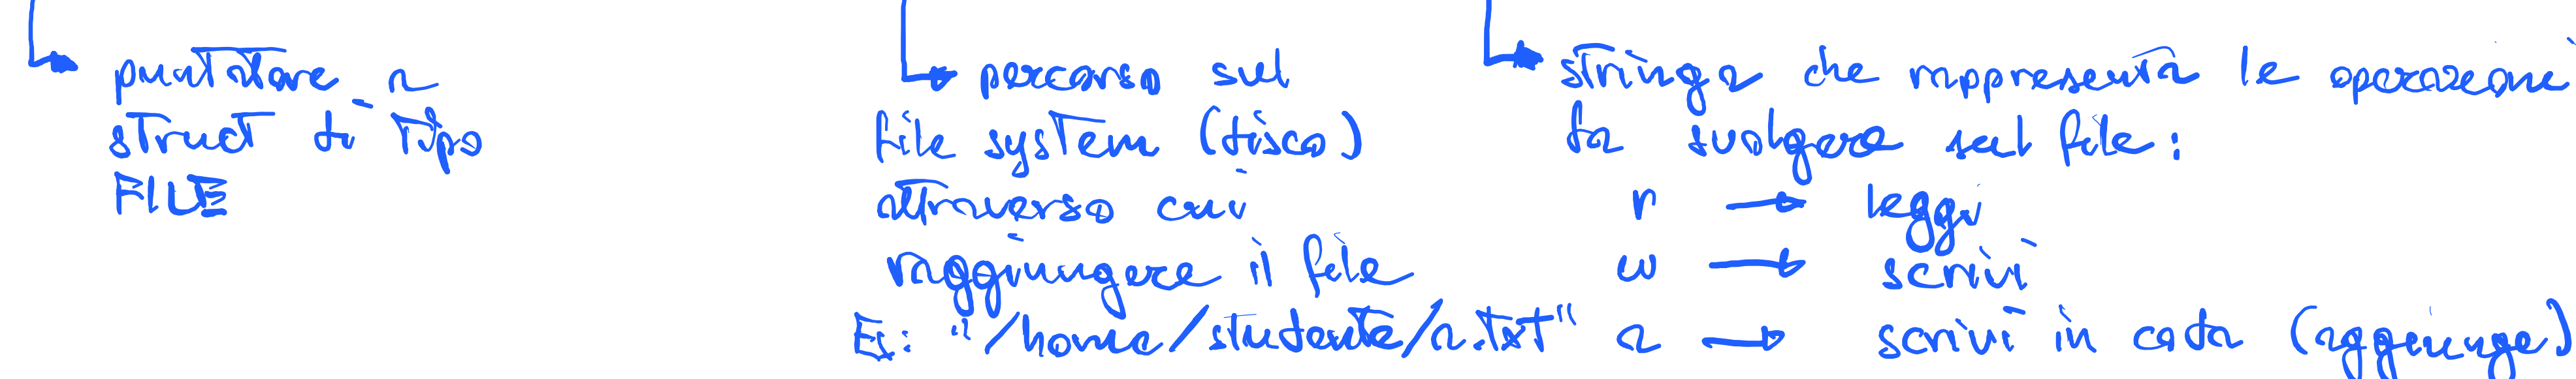 puntatore a
struct di tipo
FILE
percorso sul
file system (disco)
attraverso cui
raggiungere il file
Es: "/home/studente/a.txt"
stringa che rappresenta le operazioni
da svolgere sul file:
r → leggi
w → scrivi
a → scrivi in coda (aggiunge)